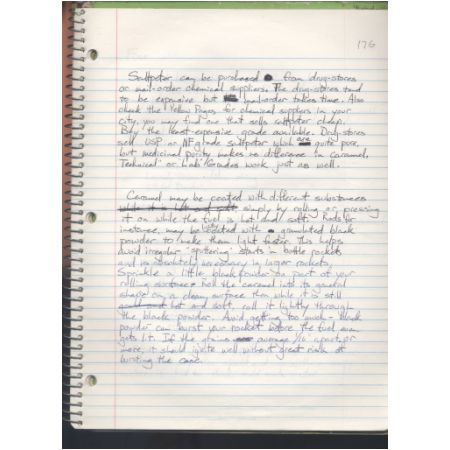 176
Saltpeter can be purchased from drug-stores
or mail-order chemical suppliers. The drug-stores tend
to be expensive but mail-order takes time. Also
check the Yellow Pages for chemical suppliers in your
city, you may find one that sells saltpeter cheap.
Buy the least-expensive grade available. Drug-stores
sell USP or NF grade saltpeter which are quite pure,
but medicinal purity makes no difference in caramel.
"Technical" or "Lab" Grades work just as well.
Caramel may be coated with different substances
while it is hot and soft simply by rolling or pressing
it on while the fuel is hot and soft. Rods for
instance, may be coated with granulated black
powder to make them light faster. This helps
avoid irregular "sputtering" starts in bottle rockets
and is absolutely necessary in larger rockets.
Sprinkle a little black powder on part of your
rolling surface, roll the caramel into its general
shape on a clean surface then while it is still
hot and soft, roll it lightly through
the black powder. Avoid getting too much - black
powder can burst your rocket before the fuel even
gets lit. If the grains average 1/16 apart, or
more, it should ignite well without great risk of
bursting the case.